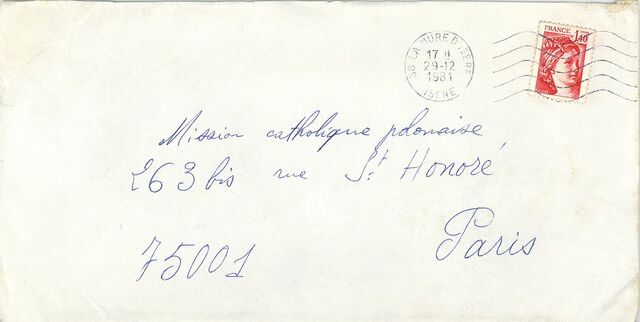 38 LA MURE D'ISERE
17 H
29-12
1981
ISERE
FRANCE
1,40
Mission catholique polonaise
263 bis rue St Honoré
Paris
75001